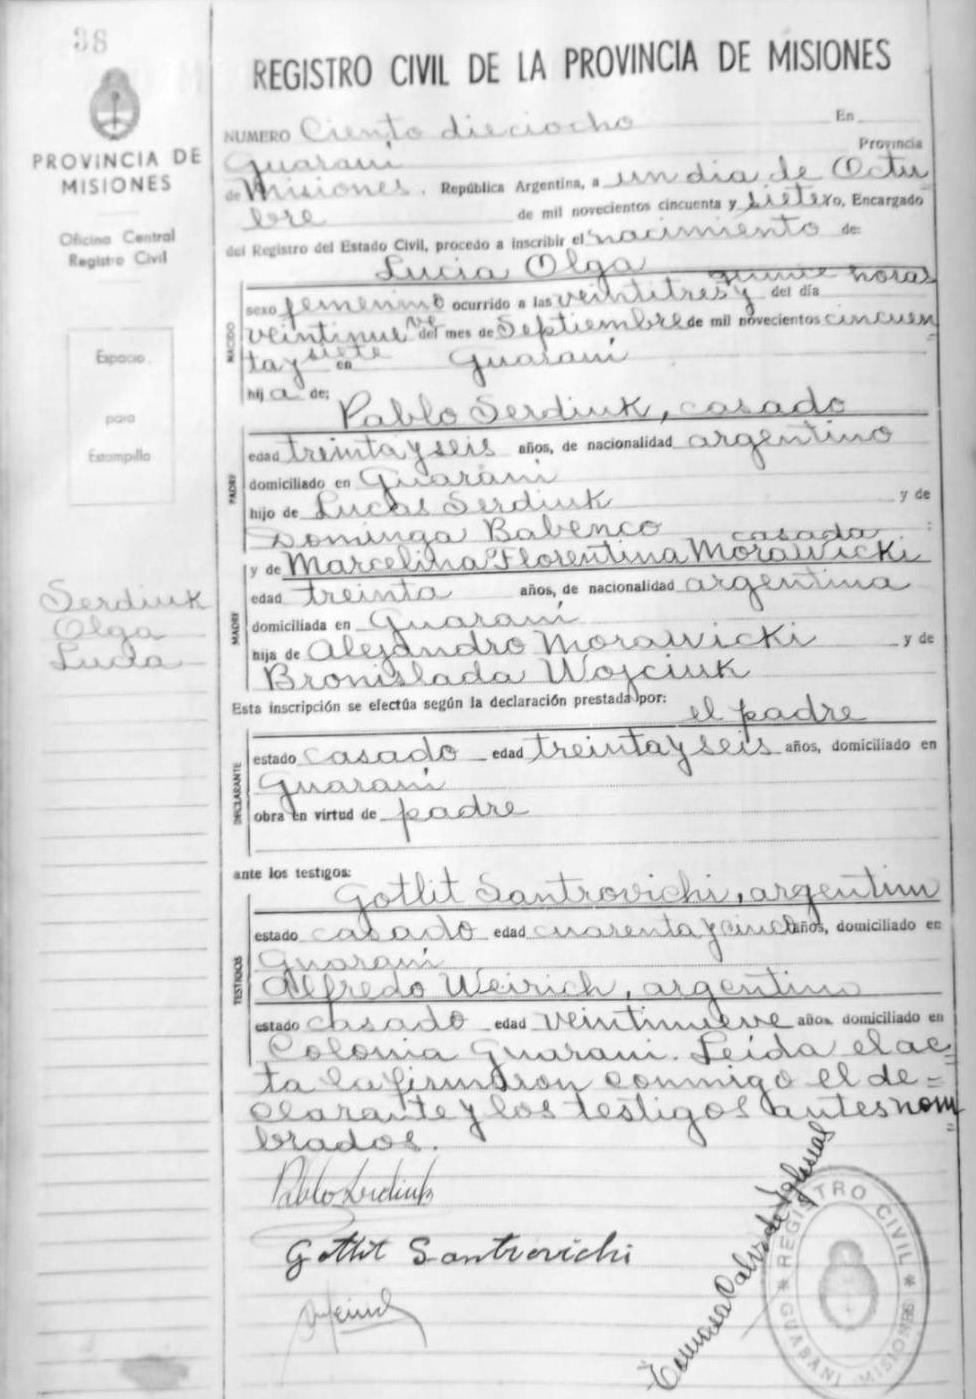 38
PROVINCIA DE
MISIONES
Oficina Central
Registro Civil
Espacio
para
Estampilla
Serdiuk
Olga
Lucia
REGISTRO CIVIL DE LA PROVINCIA DE MISIONES
NUMERO Ciento dieciocho En
Guaraní Provincia
de Misiones. República Argentina, a un dia de Octu
bre de mil novecientos cincuenta y siete yo, Encargado
del Registro del Estado Civil, procedo a inscribir el nacimiento de:
Lucia Olga
NACIDO
sexo femenino ocurrido a las veintitres y quince horas del día
veintinueve del mes de Septiembre de mil novecientos cincuen
ta y siete en Guaraní
hija de:
Pablo Serdiuk, casado
PADRE
edad treinta y seis años, de nacionalidad argentino
domiciliado en Guaraní
hijo de Lucas Serdiuk y de
Dominga Babenco
casada
y de Marcelina Florentina Morawicki
MADRE
edad treinta años, de nacionalidad argentina
domiciliada en Guaraní
hija de Alejandro Morawicki y de
Bronislada Wojciuk
Esta inscripción se efectúa según la declaración prestada por:
el padre
DECLARANTE
estado casado edad treinta y seis años, domiciliado en
Guaraní
obra en virtud de padre
ante los testigos:
Gotlit Santrovichi, argentino
TESTIGOS
estado casado edad cuarenta y cinco años, domiciliado en
Guaraní
Alfredo Weirich, argentino
estado casado edad veintinueve años, domiciliado en
Colonia Guaraní. Leída el ac=
ta la firmaron conmigo el de=
clarante y los testigos antes nom=
brados.
Pablo Serdiuk
Gotlit Santrovichi
Tomasa Calvo de Iglesias
REGISTRO CIVIL
GUARANI MISIONES